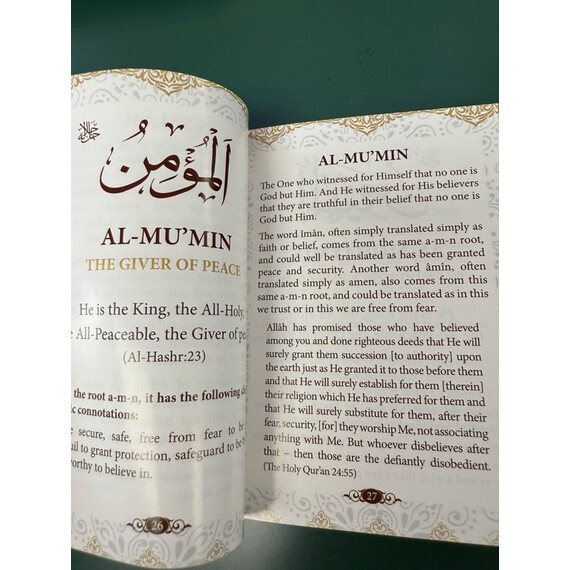 جل جلاله
اَلْمُؤْمِنُ
AL-MU’MIN
THE GIVER OF PEACE
He is the King, the All-Holy,
All-Peaceable, the Giver of
(Al-Hashr:23)
the root a-m-n, it has the following
connotations:
secure, safe, free from fear to be
to grant protection, safeguard to be
to believe in.
26
AL-MU’MIN
The One who witnessed for Himself that no one is
God but Him. And He witnessed for His believers
that they are truthful in their belief that no one is
God but Him.
The word îmân, often simply translated simply as
faith or belief, comes from the same a-m-n root,
and could well be translated as has been granted
peace and security. Another word âmîn, often
translated simply as amen, also comes from this
same a-m-n root, and could be translated as in this
we trust or in this we are free from fear.
Allâh has promised those who have believed
among you and done righteous deeds that He will
surely grant them succession [to authority] upon
the earth just as He granted it to those before them
and that He will surely establish for them [therein]
their religion which He has preferred for them and
that He will surely substitute for them, after their
fear, security, [for] they worship Me, not associating
anything with Me. But whoever disbelieves after
that – then those are the defiantly disobedient.
(The Holy Qur’an 24:55)
27